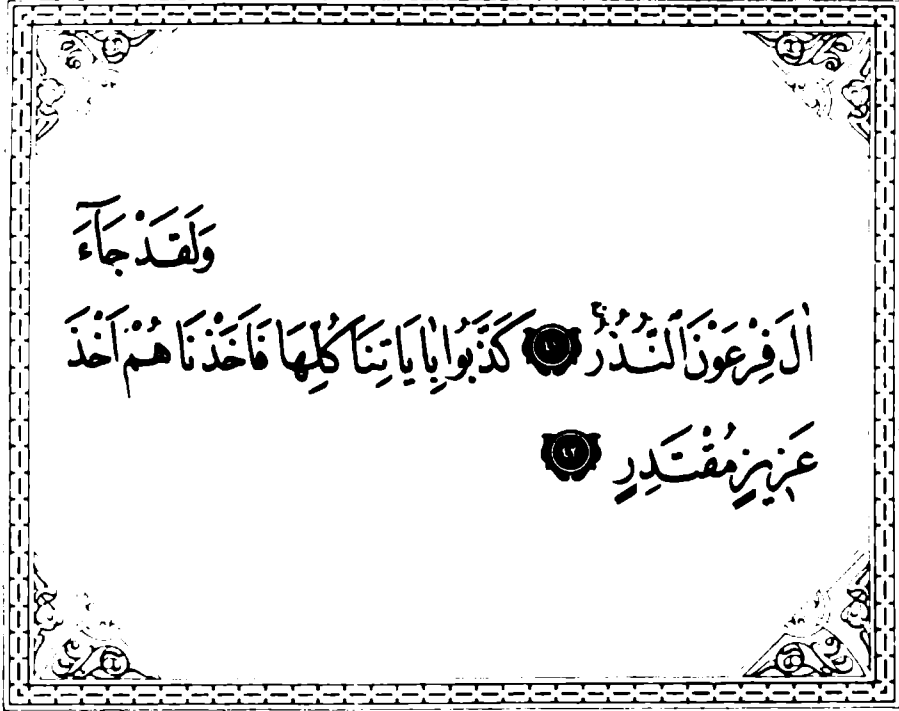 وَلَقَدْ جَآءَ
اٰلَ فِرْعَوْنَ النُّذُرُۚ ﴿٤١﴾ كَذَّبُوا بِاٰيَاتِنَا كُلِّهَا فَاَخَذْنَا هُمْ اَخْذَ
عَزِيزٍ مُقْتَدِرٍ ﴿٤٢﴾